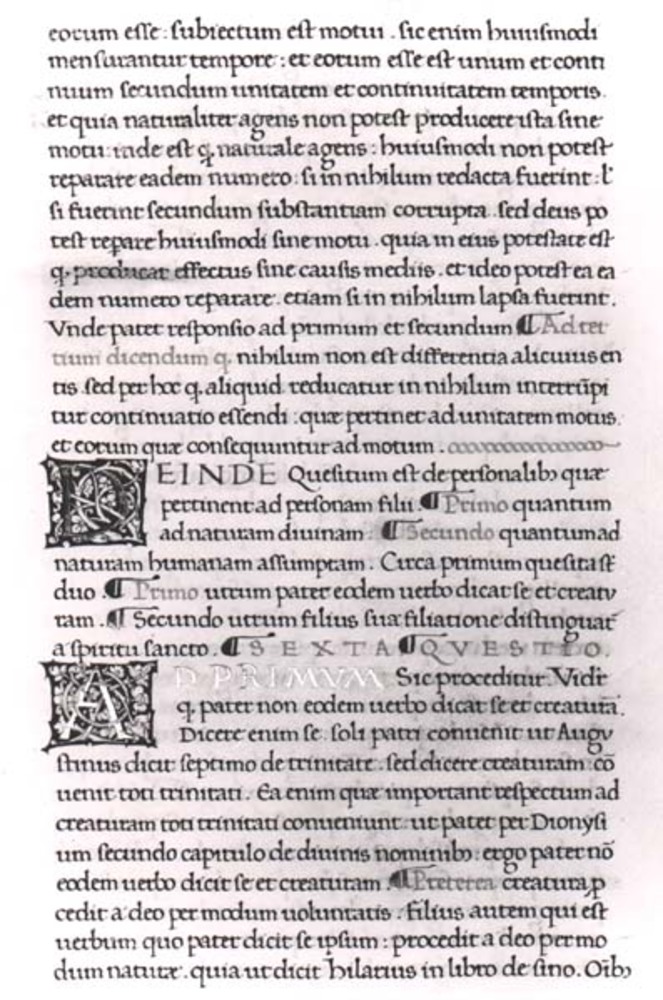 eorum esse: subiectum est motui. sic enim huiusmodi
mensurantur tempore: et eorum esse est unum et conti
nuum secundum unitatem et continuitatem temporis.
et quia naturaliter agens non potest producere ista sine
motu: inde est ꝙ naturale agens: huiusmodi non potest
reparare eadem numero: si in nihilum redacta fuerint: ł
si fuerint secundum substantiam corrupta. sed deus po
test repare huiusmodi sine motu. quia in eius potestate est
ꝙ producat effectus sine causis mediis. et ideo potest ea ea
dem numero reparare. etiam si in nihilum lapsa fuerint.
Vnde patet responsio ad primum et secundum ¶ Ad ter
tium dicendum ꝙ nihilum non est differentia alicuius en
tis. sed per hoc ꝙ aliquid reducatur in nihilum interrũpi
tur continuatio essendi: quæ pertinet ad unitatem motus.
et eorum quæ consequuntur ad motum.
DEINDE Quesitum est de personalibꝫ quæ
pertinent ad personam filii. ¶ Primo quantum
ad naturam diuinam. ¶ Secundo quantum ad
naturam humanam assumptam. Circa primum quesita sũt
duo. ¶ Primo utrum pater eodem uerbo dicat se et creatu
ram. ¶ Secundo utrum filius sua filiatione distinguat᷑
a spiritu sancto. ¶ SEXTA ¶ QVESTIO.
AD PRIMVM Sic proceditur. Videt᷑
ꝙ pater non eodem uerbo dicat se et creaturã.
Dicere enim se. soli patri conuenit ut Augu
stinus dicit septimo de trinitate. sed dicere creaturam: cõ
uenit toti trinitati. Ea enim quæ important respectum ad
creaturam toti trinitati conueniunt: ut patet per Dionysi
um secundo capitulo de diuinis nominibꝫ: ergo pater nõ
eodem uerbo dicit se et creaturam. ¶ Preterea creatura ꝓ
cedit a deo per modum uoluntatis: filius autem qui est
uerbum quo pater dicit se ipsum: procedit a deo per mo
dum naturæ. quia ut dicit hilarius in libro de sino. Oibꝫ